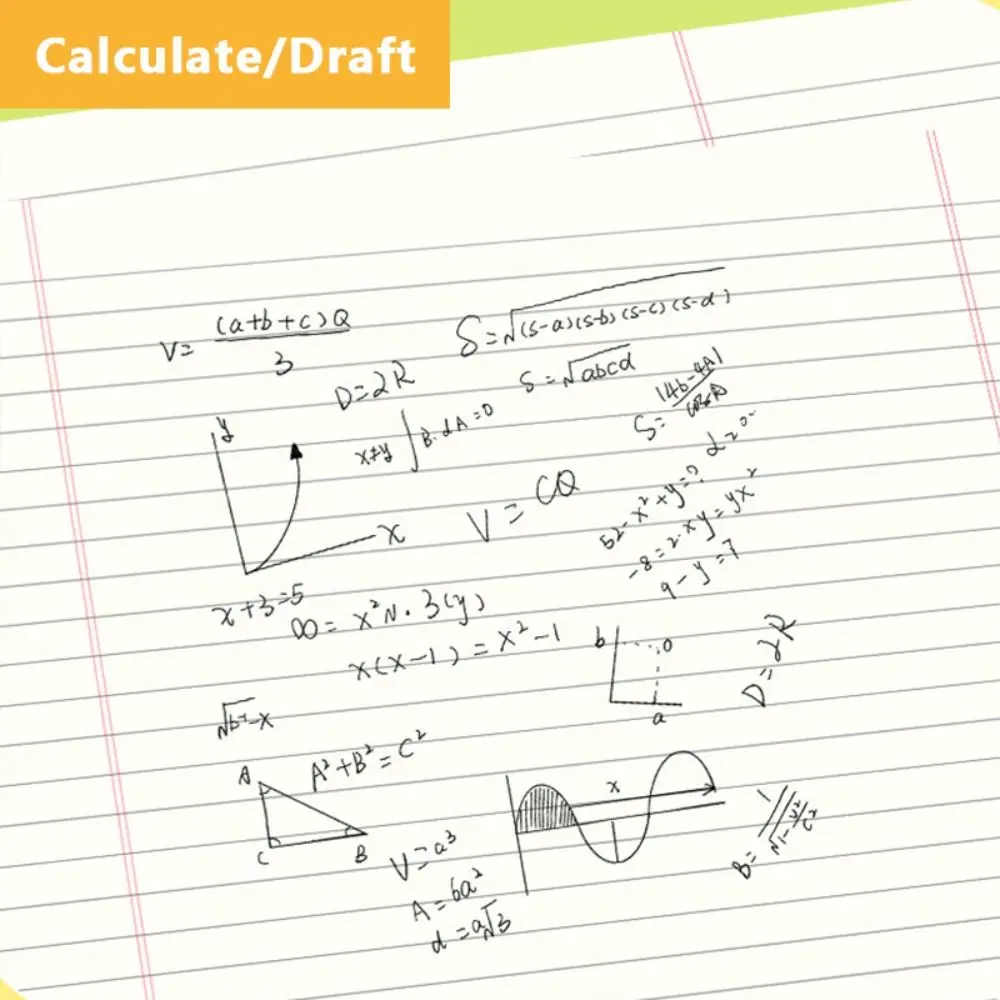 Calculate/Draft
V= (a+b+c)Q
3
S=√(s-a)(s-b)(s-c)(s-d)
D=2R
S=√abcd
x≠y ∫B·dA=0
y
x
V=CQ
52-x²+y=?
-8=2·xy=yx²
9-y=7
x+3=5
∞=x²N·3(y)
x(x-1)=x²-1
b
o
a
D=2R
A²+B²=C²
A
C
B
x
V=a³
A=6a²
d=a√3
B= 1
√1-v²/c²